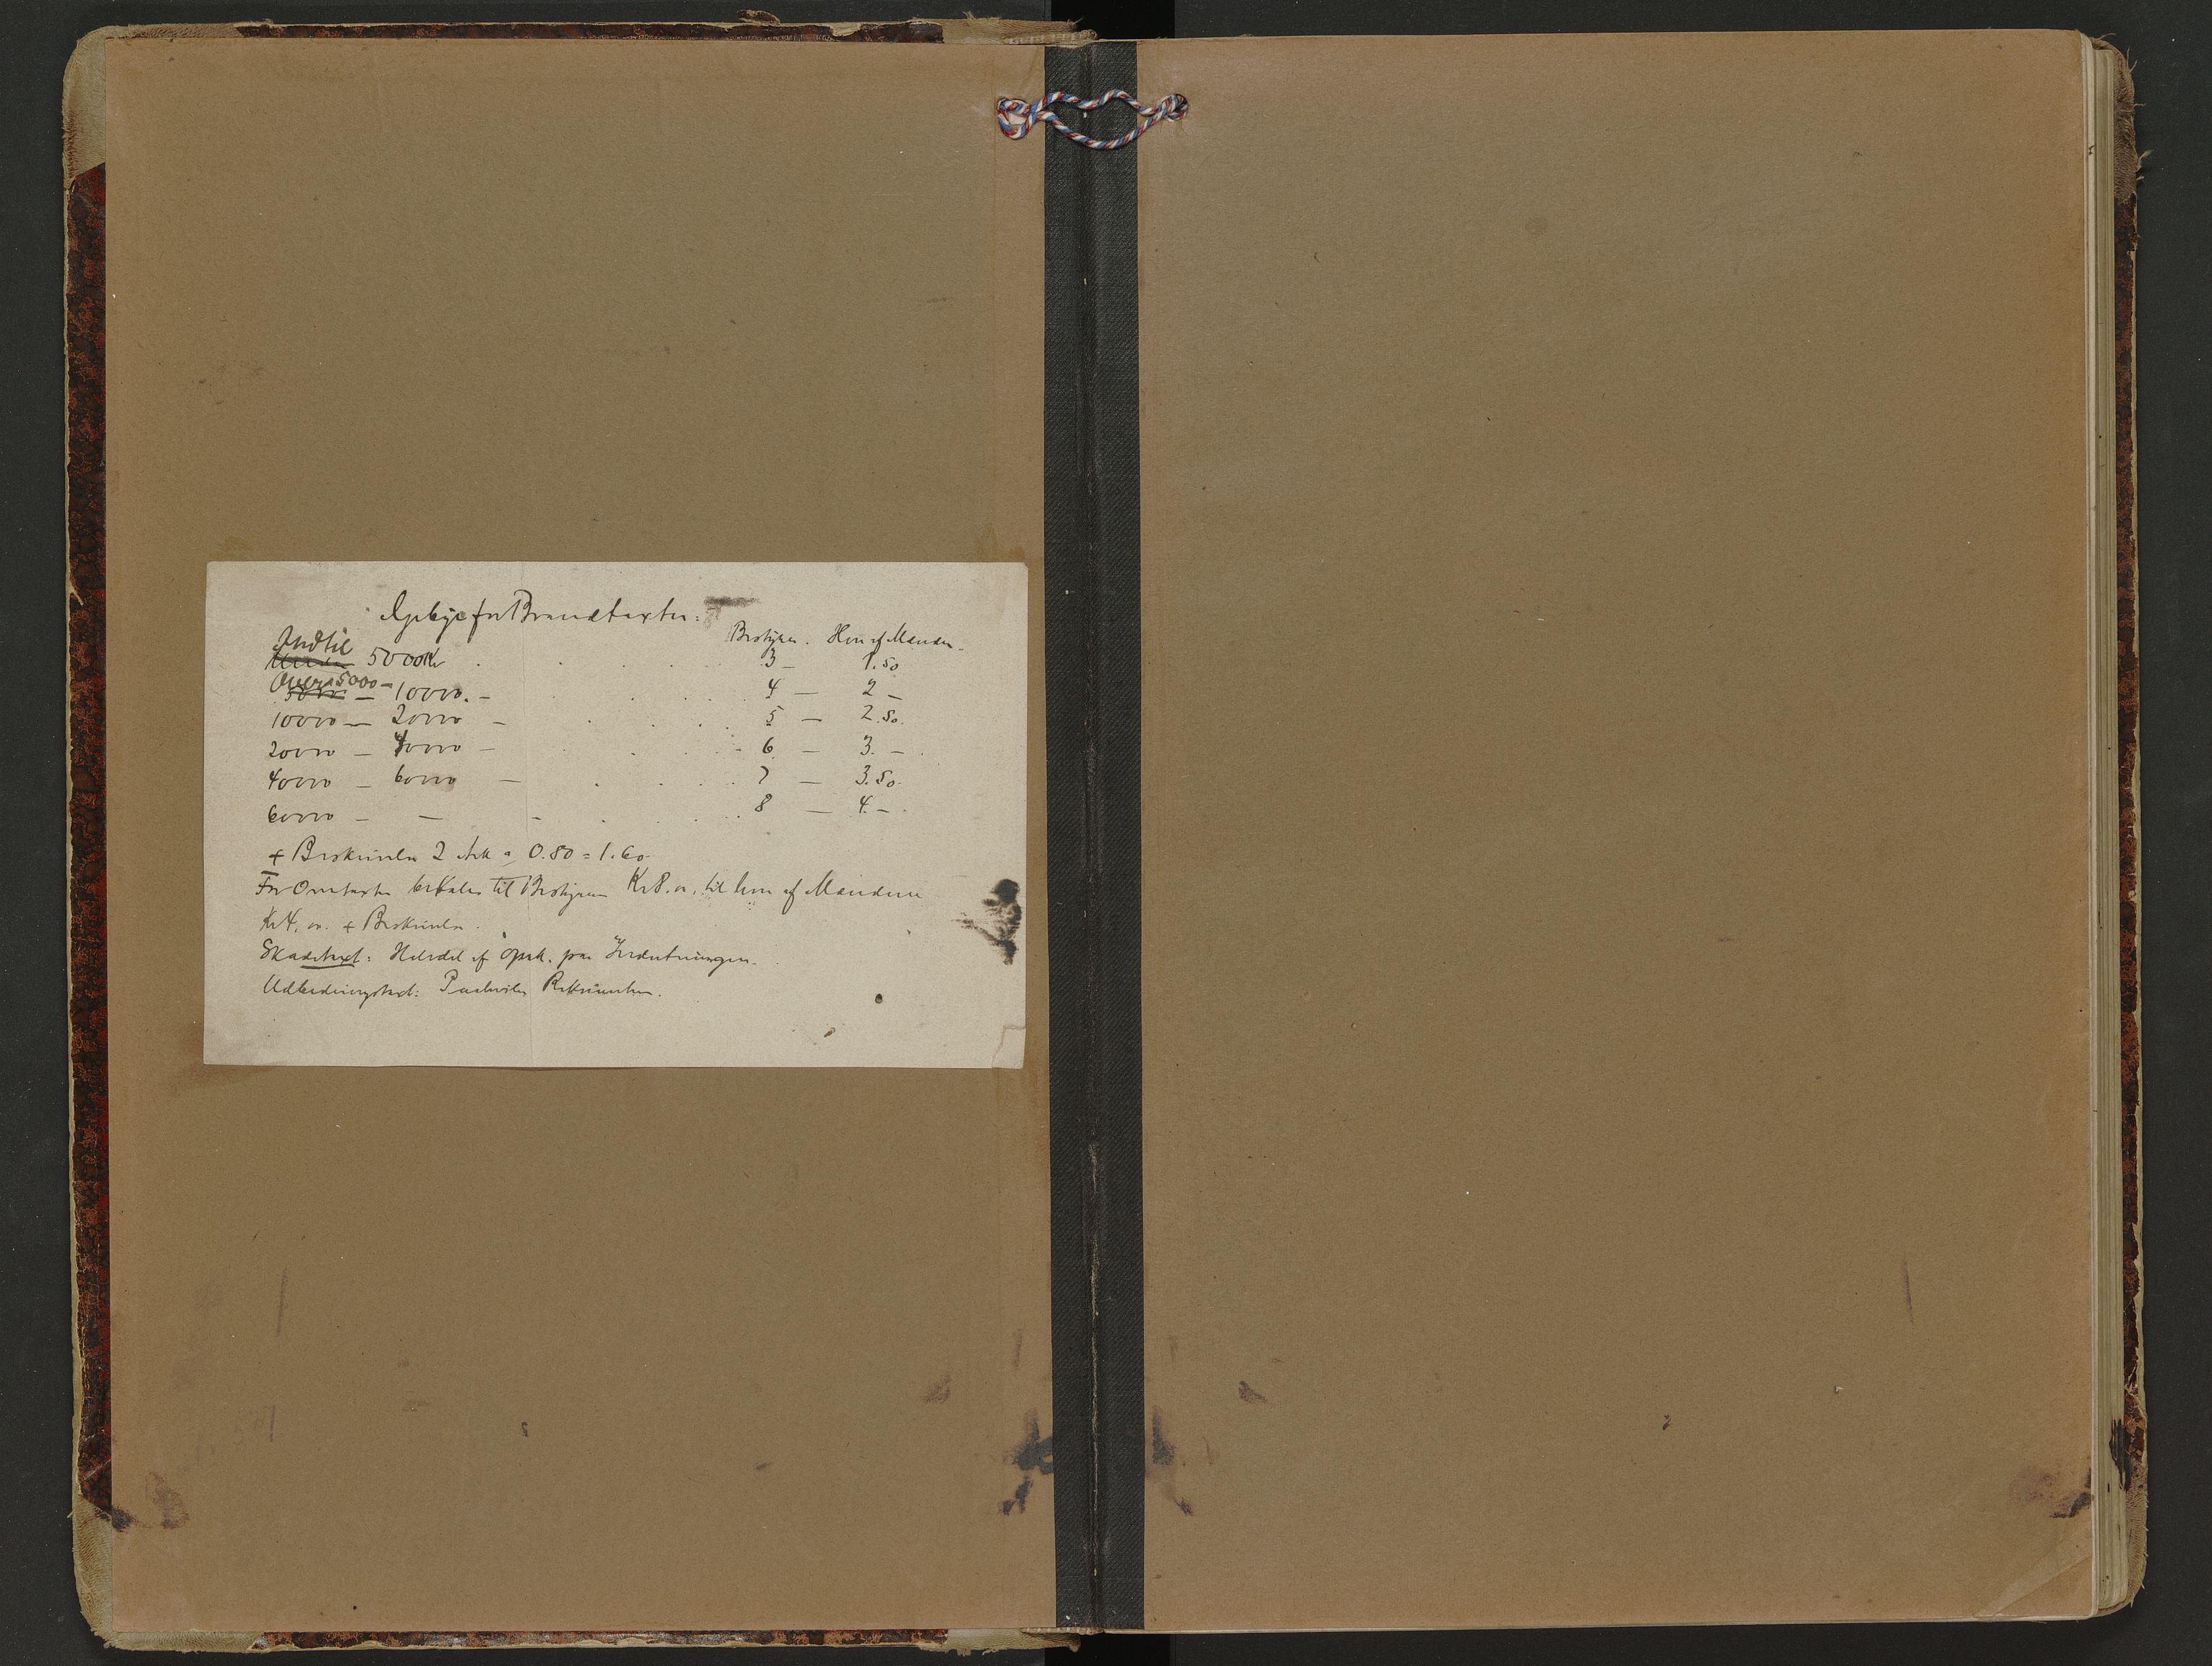 Gebyr for Brandtaxter:
Bestyrer. Hver af Mænden.
Indtil
Under 5000 Kr . . . . . 3 — 1.50
Over 5000 —
5000 — 10000. — . . . . 4 — 2 —
10000 — 20000 — . . . . 5 — 2.50.
20000 — 40000 — . . . . 6 — 3. —
40000 — 60000 — . . . . 7 — 3.50.
60000 — — — . . . . 8 — 4. —
+ Beskrivelse 2 Ark a 0.80 = 1.60.
For Omtaxter betales til Bestyreren Kr 8.00, til hver af Mændene
Kr 4.00. + Beskrivelse.
Skadetaxt: Halvdel af paa